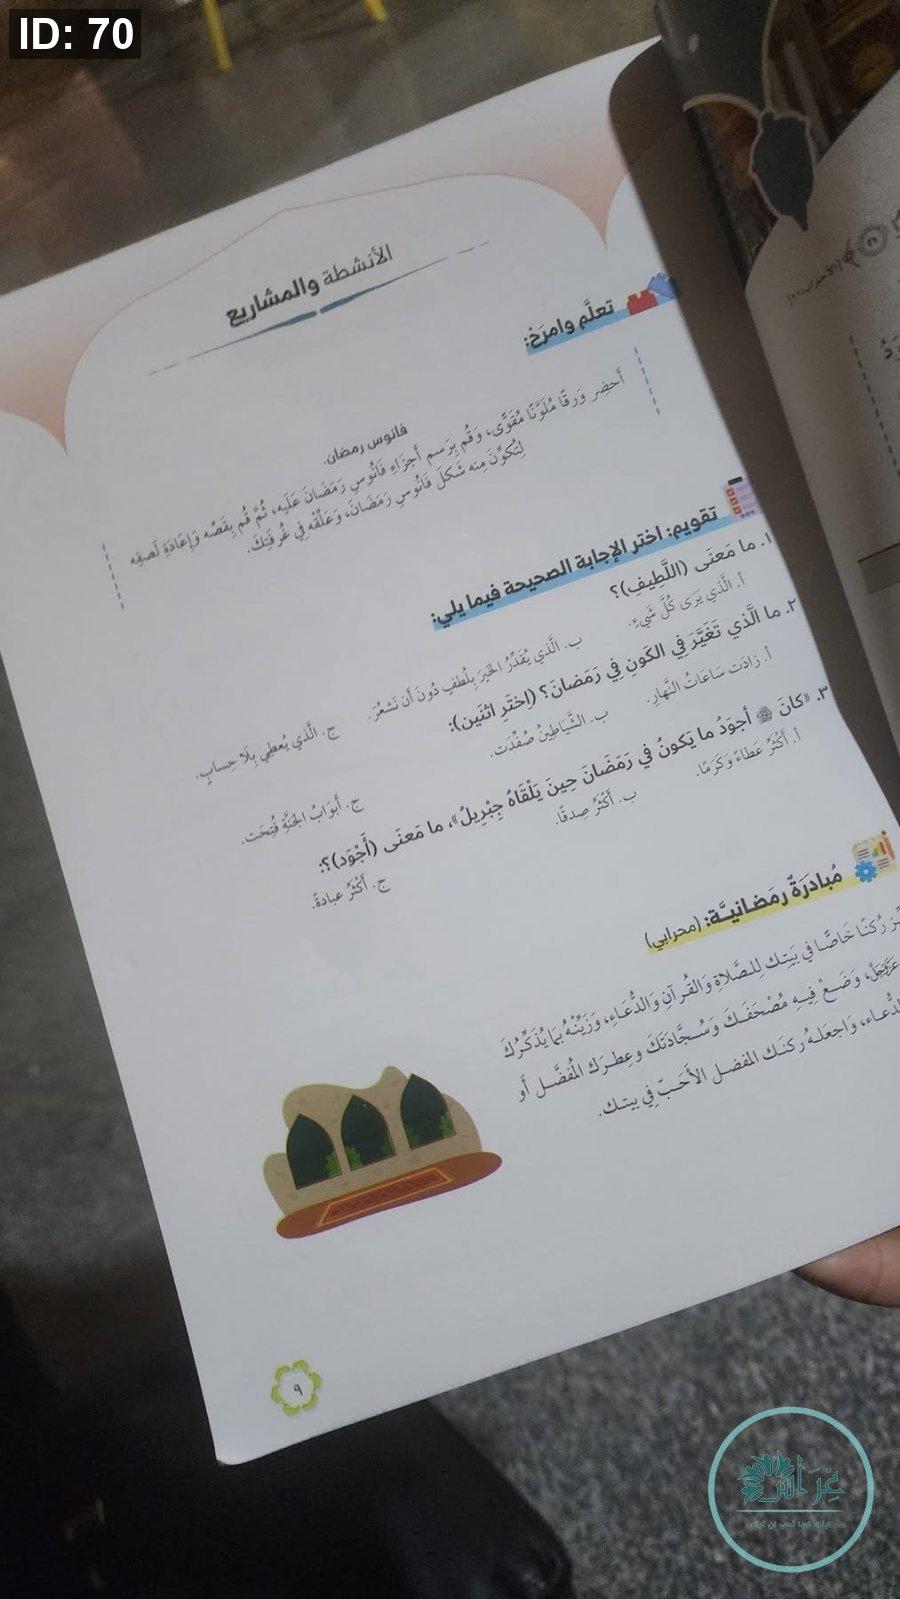 ID: 70
الأنشطة والمشاريع
تعلَّم وامرَح:
فانوس رمضان.
أَحضِر وَرقًا مُلَوَّنًا مُقَوًّى، وَقُم بِرَسم أَجزَاءِ فَانُوسِ رَمَضَانَ عَلَيه، ثُمَّ قُم بِقَصِّه وَإِعَادَةِ لَصقِه
لِتُكوِّنَ مِنه شَكلَ فَانُوسِ رَمَضَانَ، وَعَلِّقْه فِي غُرفَتِكَ.
تقويم: اختر الإجابة الصحيحة فيما يلي:
١. ما مَعنَى (اللَّطِيفِ)؟
أ. الَّذي يَرَى كُلَّ شَيءٍ.
ب. الَّذي يُقَدِّرُ الخَيرَ بِلُطفٍ دُونَ أَن نَشعُرَ.
ج. الَّذي يُعطِي بِلَا حِسابٍ.
٢. ما الَّذي تَغَيَّرَ فِي الكَونِ فِي رَمَضانَ؟ (اختَرِ اثنَين):
أ. زادَت سَاعَاتُ النَّهارِ.
ب. الشَّيَاطِينُ صُفِّدَت.
ج. أَبوَابُ الجَنَّةِ فُتِحَت.
٣. «كانَ ﷺ أجوَدُ ما يَكونُ في رَمَضَانَ حِينَ يَلْقَاهُ جِبْرِيلُ»، ما مَعنَى (أَجْوَد)؟:
أ. أَكثَرُ عَطَاءً وَكَرَمًا.
ب. أَكثَرُ صِدقًا.
ج. أَكثَرُ عبادةً.
مُبادَرَةٌ رمَضانيَّة: (محرابي)
رُكنًا خَاصًّا في بَيتِك لِلصَّلاةِ وَالقُرآنِ وَالدُّعَاءِ، وَزَيِّنْهُ بِمَا يُذَكِّرُكَ
عَزَّوَجَلَّ، وَضَعْ فِيهِ مُصْحَفَكَ وَسُجَّادَتَكَ وعِطرَك المُفضَّل أَو
وَاجعَلهُ ركنَك المفضل الأَحَبّ فِي بيتك.
٩
غِرَاس